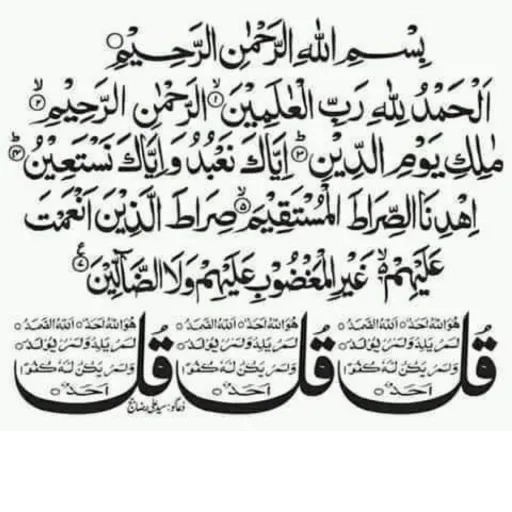 بِسْمِ اللهِ الرَّحْمٰنِ الرَّحِيْمِ
اَلْحَمْدُ لِلّٰهِ رَبِّ الْعٰلَمِيْنَ ۙ۱ الرَّحْمٰنِ الرَّحِيْمِ ۙ۲
مٰلِكِ يَوْمِ الدِّيْنِ ؕ۳ اِيَّاكَ نَعْبُدُ وَاِيَّاكَ نَسْتَعِيْنُ ؕ۴
اِهْدِنَا الصِّرَاطَ الْمُسْتَقِيْمَ ۙ۵ صِرَاطَ الَّذِيْنَ اَنْعَمْتَ
عَلَيْهِمْ ۙ۬۶ غَيْرِ الْمَغْضُوْبِ عَلَيْهِمْ وَلَا الضَّآلِّيْنَ ۷
قُلْ هُوَ اللهُ اَحَدٌ ○ اَللهُ الصَّمَدُ ○ لَمْ يَلِدْ وَلَمْ يُوْلَدْ ○ وَلَمْ يَكُنْ لَهٗ كُفُوًا اَحَدٌ ○
قُلْ هُوَ اللهُ اَحَدٌ ○ اَللهُ الصَّمَدُ ○ لَمْ يَلِدْ وَلَمْ يُوْلَدْ ○ وَلَمْ يَكُنْ لَهٗ كُفُوًا اَحَدٌ ○
قُلْ هُوَ اللهُ اَحَدٌ ○ اَللهُ الصَّمَدُ ○ لَمْ يَلِدْ وَلَمْ يُوْلَدْ ○ وَلَمْ يَكُنْ لَهٗ كُفُوًا اَحَدٌ ○
دعاگو: سید علی رضا